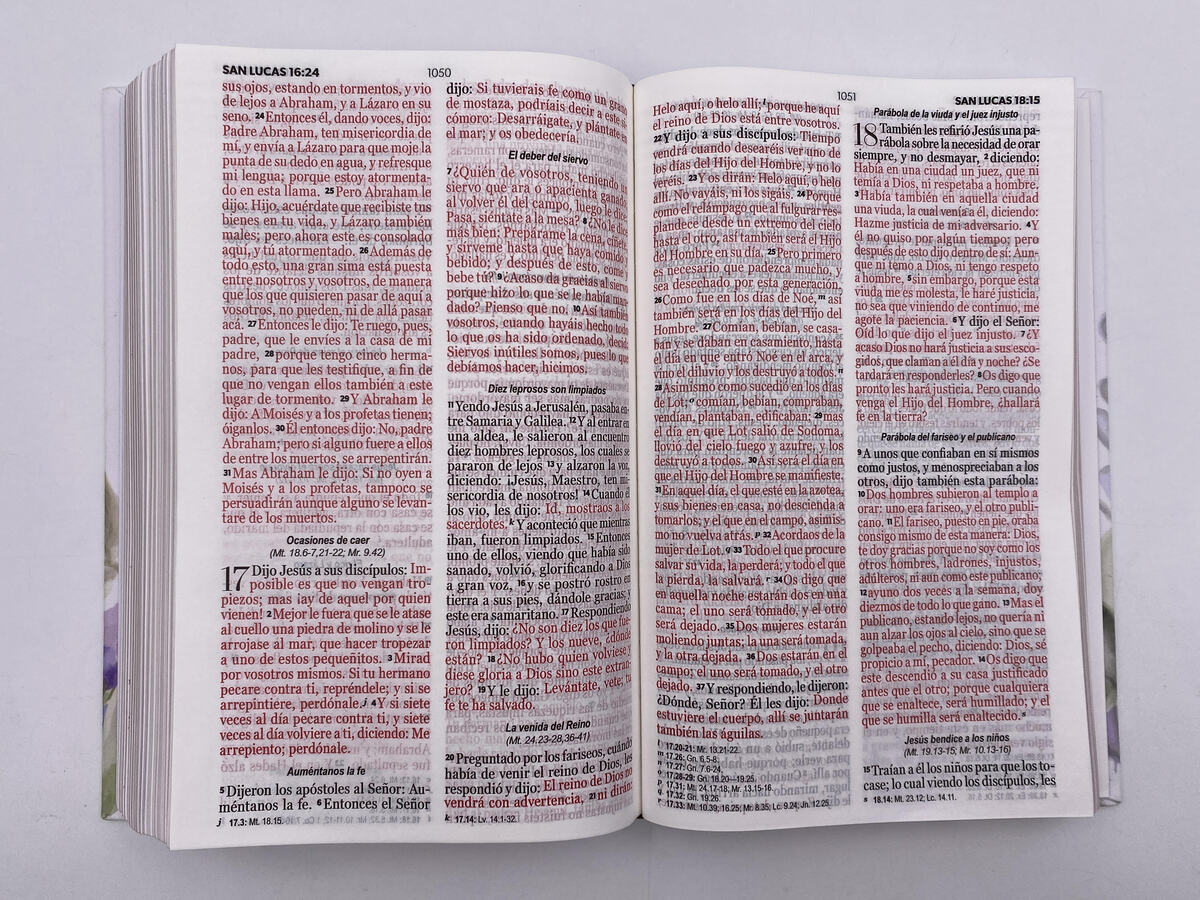 SAN LUCAS 16:24
1050
sus ojos, estando en tormentos, y vio
de lejos a Abraham, y a Lázaro en su
seno. 24 Entonces él, dando voces, dijo:
Padre Abraham, ten misericordia de
mí, y envía a Lázaro para que moje la
punta de su dedo en agua, y refresque
mi lengua; porque estoy atormenta-
do en esta llama. 25 Pero Abraham le
dijo: Hijo, acuérdate que recibiste tus
bienes en tu vida, y Lázaro también
males; pero ahora este es consolado
aquí, y tú atormentado. 26 Además de
todo esto, una gran sima está puesta
entre nosotros y vosotros, de manera
que los que quisieren pasar de aquí a
vosotros, no pueden, ni de allá pasar
acá. 27 Entonces le dijo: Te ruego, pues,
padre, que le envíes a la casa de mi
padre, 28 porque tengo cinco herma-
nos, para que les testifique, a fin de
que no vengan ellos también a este
lugar de tormento. 29 Y Abraham le
dijo: A Moisés y a los profetas tienen;
óiganlos. 30 Él entonces dijo: No, padre
Abraham; pero si alguno fuere a ellos
de entre los muertos, se arrepentirán.
31 Mas Abraham le dijo: Si no oyen a
Moisés y a los profetas, tampoco se
persuadirán aunque alguno se levan-
tare de los muertos.
Ocasiones de caer
(Mt. 18.6-7,21-22; Mr. 9.42)
17 Dijo Jesús a sus discípulos: Im-
posible es que no vengan tro-
piezos; mas ¡ay de aquel por quien
vienen! 2 Mejor le fuera que se le atase
al cuello una piedra de molino y se le
arrojase al mar, que hacer tropezar
a uno de estos pequeñitos. 3 Mirad
por vosotros mismos. Si tu hermano
pecare contra ti, repréndele; y si se
arrepintiere, perdónale. j 4 Y si siete
veces al día pecare contra ti, y siete
veces al día volviere a ti, diciendo: Me
arrepiento; perdónale.
Auméntanos la fe
5 Dijeron los apóstoles al Señor: Au-
méntanos la fe. 6 Entonces el Señor
j 17.3: Mt. 18.15.
dijo: Si tuvierais fe como un grano
de mostaza, podríais decir a este si-
cómoro: Desarráigate, y plántate en
el mar; y os obedecería.
El deber del siervo
7 ¿Quién de vosotros, teniendo un
siervo que ara o apacienta ganado,
al volver él del campo, luego le dice:
Pasa, siéntate a la mesa? 8 ¿No le dice
más bien: Prepárame la cena, cíñete,
y sírveme hasta que haya comido y
bebido; y después de esto, come y
bebe tú? 9 ¿Acaso da gracias al siervo
porque hizo lo que se le había man-
dado? Pienso que no. 10 Así también
vosotros, cuando hayáis hecho todo
lo que os ha sido ordenado, decid:
Siervos inútiles somos, pues lo que
debíamos hacer, hicimos.
Diez leprosos son limpiados
11 Yendo Jesús a Jerusalén, pasaba en-
tre Samaria y Galilea. 12 Y al entrar en
una aldea, le salieron al encuentro
diez hombres leprosos, los cuales se
pararon de lejos 13 y alzaron la voz,
diciendo: ¡Jesús, Maestro, ten mi-
sericordia de nosotros! 14 Cuando él
los vio, les dijo: Id, mostraos a los
sacerdotes. k Y aconteció que mientras
iban, fueron limpiados. 15 Entonces
uno de ellos, viendo que había sido
sanado, volvió, glorificando a Dios
a gran voz, 16 y se postró rostro en
tierra a sus pies, dándole gracias; y
este era samaritano. 17 Respondiendo
Jesús, dijo: ¿No son diez los que fue-
ron limpiados? Y los nueve, ¿dónde
están? 18 ¿No hubo quien volviese y
diese gloria a Dios sino este extran-
jero? 19 Y le dijo: Levántate, vete; tu
fe te ha salvado.
La venida del Reino
(Mt. 24.23-28,36-41)
20 Preguntado por los fariseos, cuándo
había de venir el reino de Dios, les
respondió y dijo: El reino de Dios no
vendrá con advertencia, 21 ni dirán:
k 17.14: Lv. 14.1-32.
1051
SAN LUCAS 18:15
Helo aquí, o helo allí; l porque he aquí
el reino de Dios está entre vosotros.
22 Y dijo a sus discípulos: Tiempo
vendrá cuando desearéis ver uno de
los días del Hijo del Hombre, y no lo
veréis. 23 Y os dirán: Helo aquí, o helo
allí. No vayáis, ni los sigáis. 24 Porque
como el relámpago que al fulgurar res-
plandece desde un extremo del cielo
hasta el otro, así también será el Hijo
del Hombre en su día. 25 Pero primero
es necesario que padezca mucho, y
sea desechado por esta generación.
26 Como fue en los días de Noé, m así
también será en los días del Hijo del
Hombre. 27 Comían, bebían, se casa-
ban y se daban en casamiento, hasta
el día en que entró Noé en el arca, y
vino el diluvio y los destruyó a todos. n
28 Asimismo como sucedió en los días
de Lot; o comían, bebían, compraban,
vendían, plantaban, edificaban; 29 mas
el día en que Lot salió de Sodoma,
llovió del cielo fuego y azufre, y los
destruyó a todos. 30 Así será el día en
que el Hijo del Hombre se manifieste.
31 En aquel día, el que esté en la azotea,
y sus bienes en casa, no descienda a
tomarlos; y el que en el campo, asimis-
mo no vuelva atrás. p 32 Acordaos de la
mujer de Lot. q 33 Todo el que procure
salvar su vida, la perderá; y todo el que
la pierda, la salvará. r 34 Os digo que
en aquella noche estarán dos en una
cama; el uno será tomado, y el otro
será dejado. 35 Dos mujeres estarán
moliendo juntas; la una será tomada,
y la otra dejada. 36 Dos estarán en el
campo; el uno será tomado, y el otro
dejado. 37 Y respondiendo, le dijeron:
¿Dónde, Señor? Él les dijo: Donde
estuviere el cuerpo, allí se juntarán
también las águilas.
l 17.20-21: Mr. 13.21-22.
m 17.26: Gn. 6.5-8.
n 17.27: Gn. 7.6-24.
o 17.28-29: Gn. 18.20—19.25.
p 17.31: Mt. 24.17-18; Mr. 13.15-16.
q 17.32: Gn. 19.26.
r 17.33: Mt. 10.39; 16.25; Mr. 8.35; Lc. 9.24; Jn. 12.25.
Parábola de la viuda y el juez injusto
18 También les refirió Jesús una pa-
rábola sobre la necesidad de orar
siempre, y no desmayar, 2 diciendo:
Había en una ciudad un juez, que ni
temía a Dios, ni respetaba a hombre.
3 Había también en aquella ciudad
una viuda, la cual venía a él, diciendo:
Hazme justicia de mi adversario. 4 Y
él no quiso por algún tiempo; pero
después de esto dijo dentro de sí: Aun-
que ni temo a Dios, ni tengo respeto
a hombre, 5 sin embargo, porque esta
viuda me es molesta, le haré justicia,
no sea que viniendo de continuo, me
agote la paciencia. 6 Y dijo el Señor:
Oíd lo que dijo el juez injusto. 7 ¿Y
acaso Dios no hará justicia a sus esco-
gidos, que claman a él día y noche? ¿Se
tardará en responderles? 8 Os digo que
pronto les hará justicia. Pero cuando
venga el Hijo del Hombre, ¿hallará
fe en la tierra?
Parábola del fariseo y el publicano
9 A unos que confiaban en sí mismos
como justos, y menospreciaban a los
otros, dijo también esta parábola:
10 Dos hombres subieron al templo a
orar: uno era fariseo, y el otro publi-
cano. 11 El fariseo, puesto en pie, oraba
consigo mismo de esta manera: Dios,
te doy gracias porque no soy como los
otros hombres, ladrones, injustos,
adúlteros, ni aun como este publicano;
12 ayuno dos veces a la semana, doy
diezmos de todo lo que gano. 13 Mas el
publicano, estando lejos, no quería ni
aun alzar los ojos al cielo, sino que se
golpeaba el pecho, diciendo: Dios, sé
propicio a mí, pecador. 14 Os digo que
este descendió a su casa justificado
antes que el otro; porque cualquiera
que se enaltece, será humillado; y el
que se humilla será enaltecido. s
Jesús bendice a los niños
(Mt. 19.13-15; Mr. 10.13-16)
15 Traían a él los niños para que los to-
case; lo cual viendo los discípulos, les
s 18.14: Mt. 23.12; Lc. 14.11.